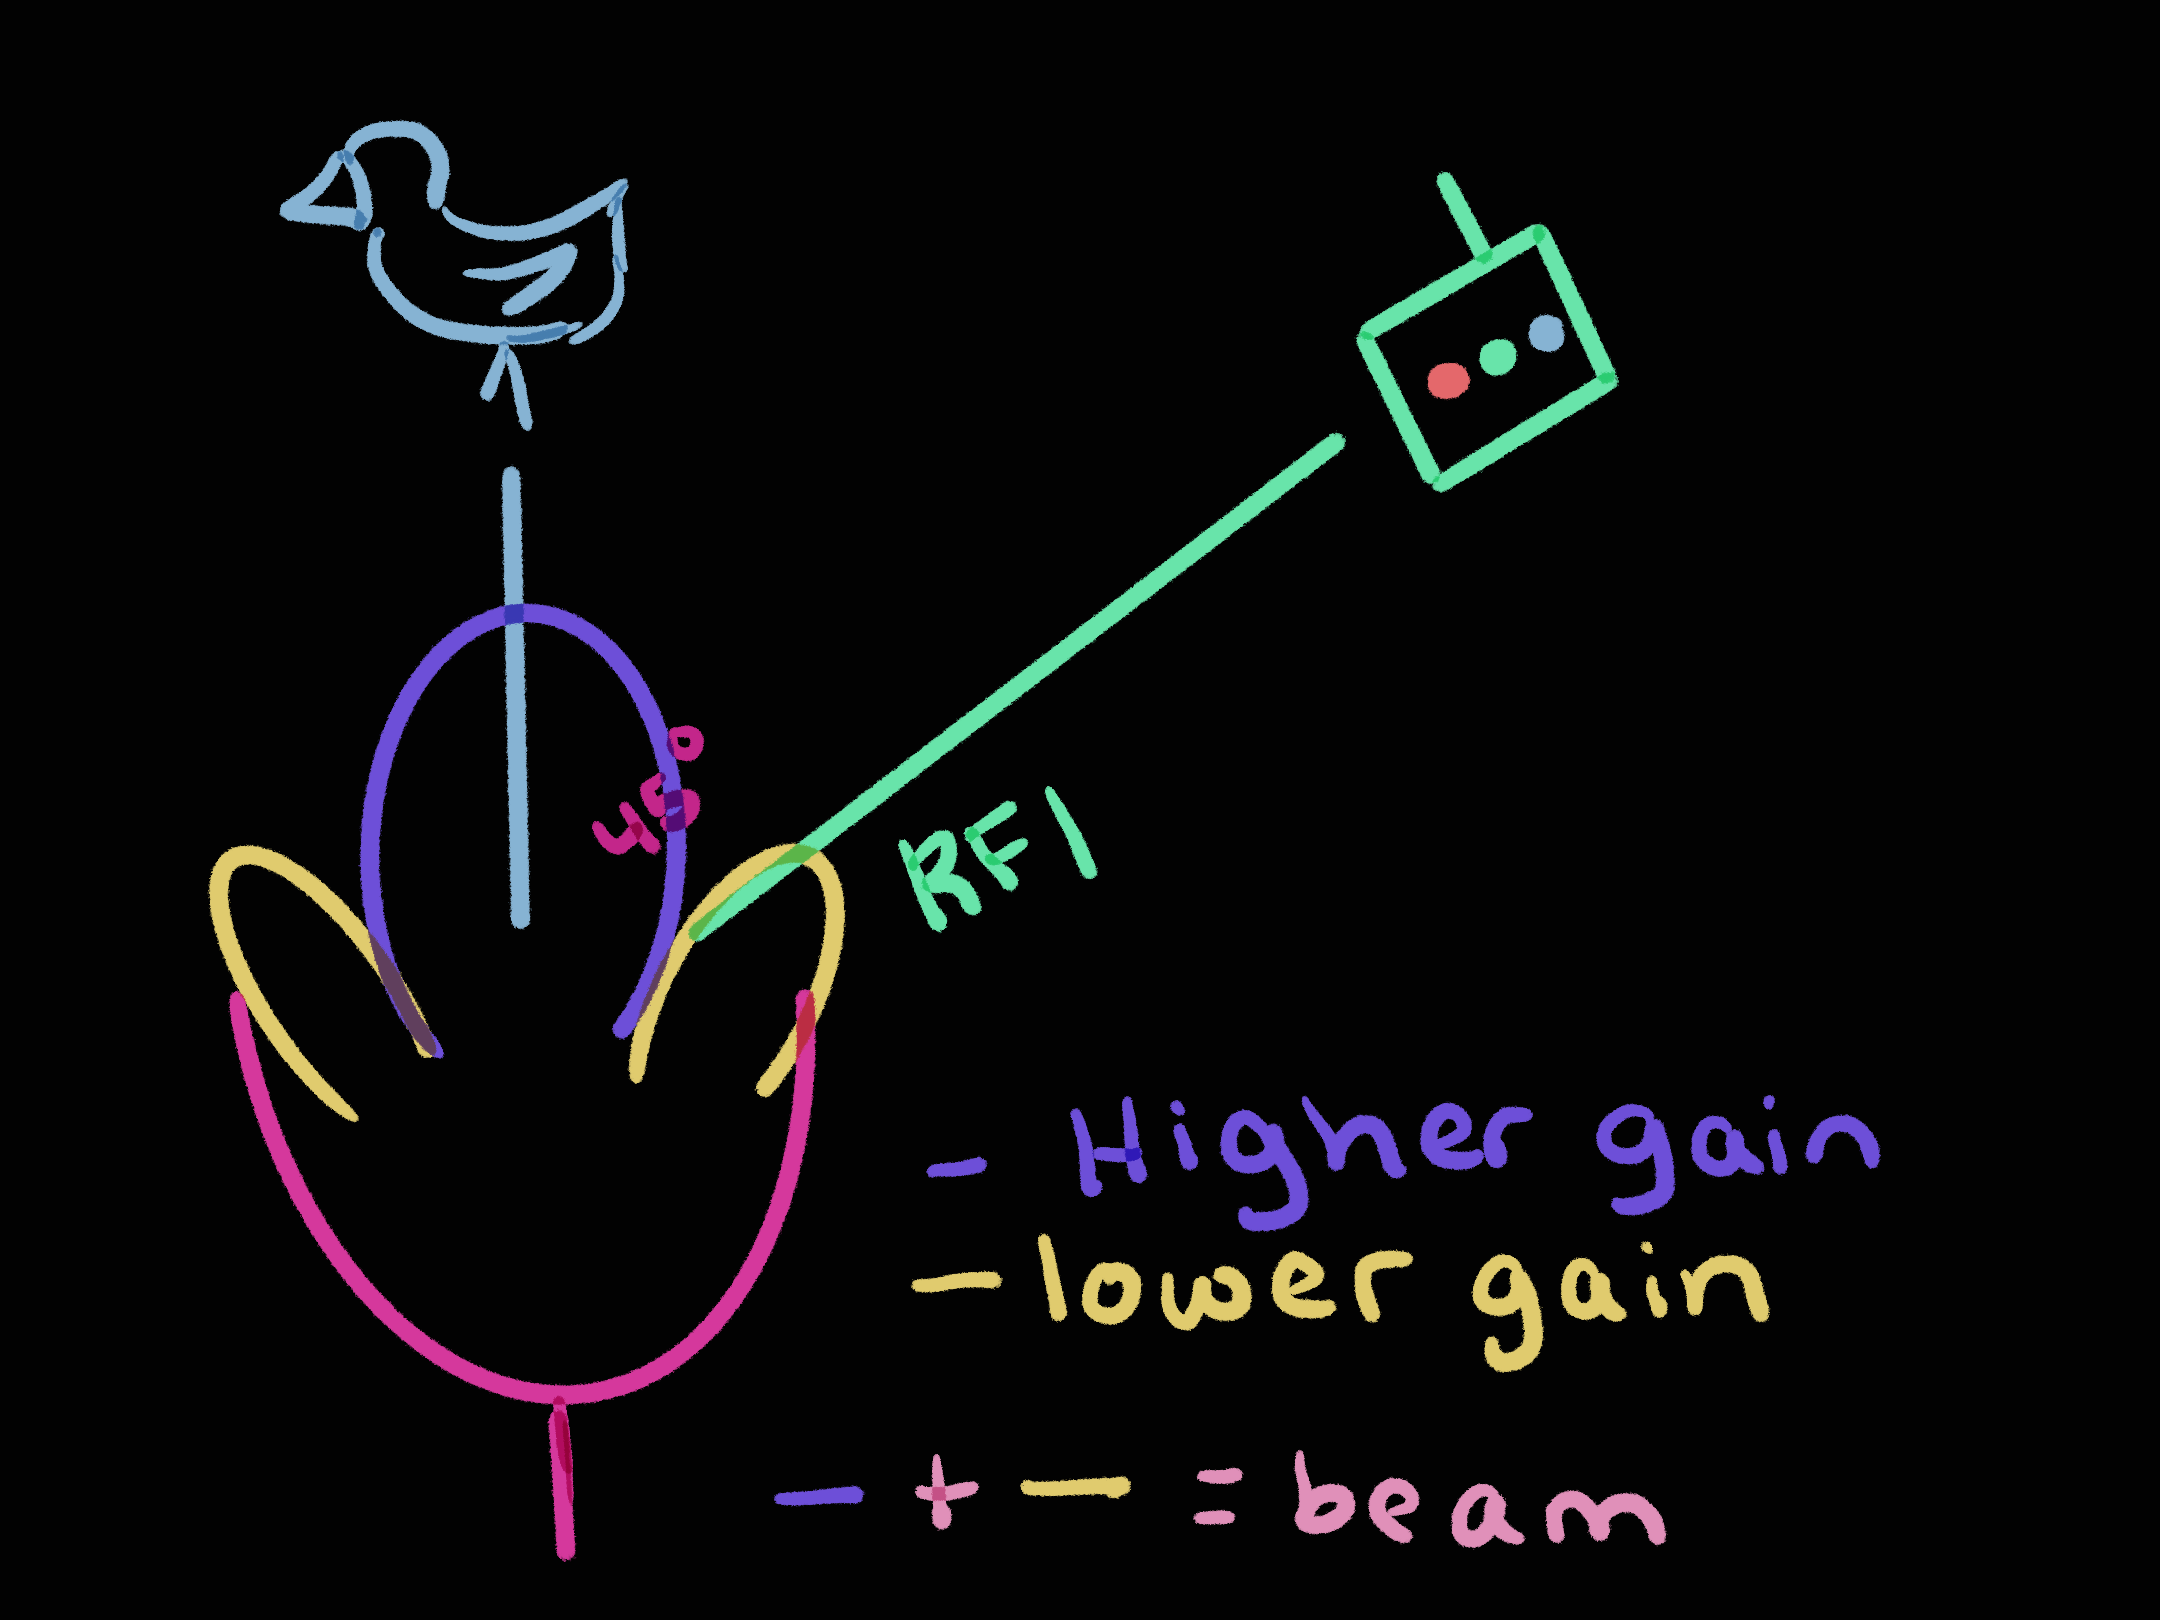 45°
RFI
- Higher gain
- lower gain
- + - = beam